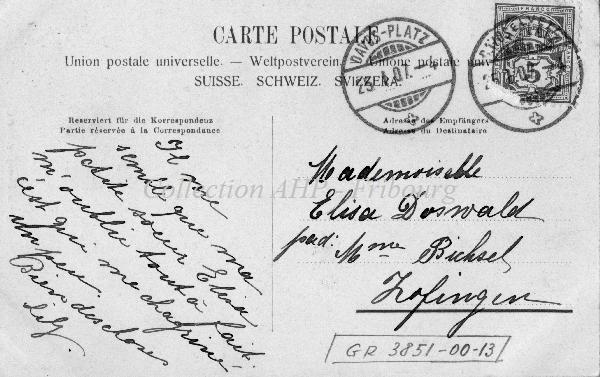 CARTE POSTALE
Union postale universelle. — Weltpostverein. — Unione postale univ
SUISSE. SCHWEIZ. SVIZZERA.
DAVOS-PLATZ
5
Reserviert für die Korrespondenz
Partie réservée à la Correspondance
Adresse des Empfängers
Adresse du Destinataire
Il me
semble que ma
petite soeur Elisa
m'oublie tout à fait.
c'est qui me chagrine
un peu.
Bien des choses
Lily.
Collection AHP - Fribourg
Mademoiselle
Elisa Doswald
pad. Mme Bichsel
Zofingen
GR 3851-00-13